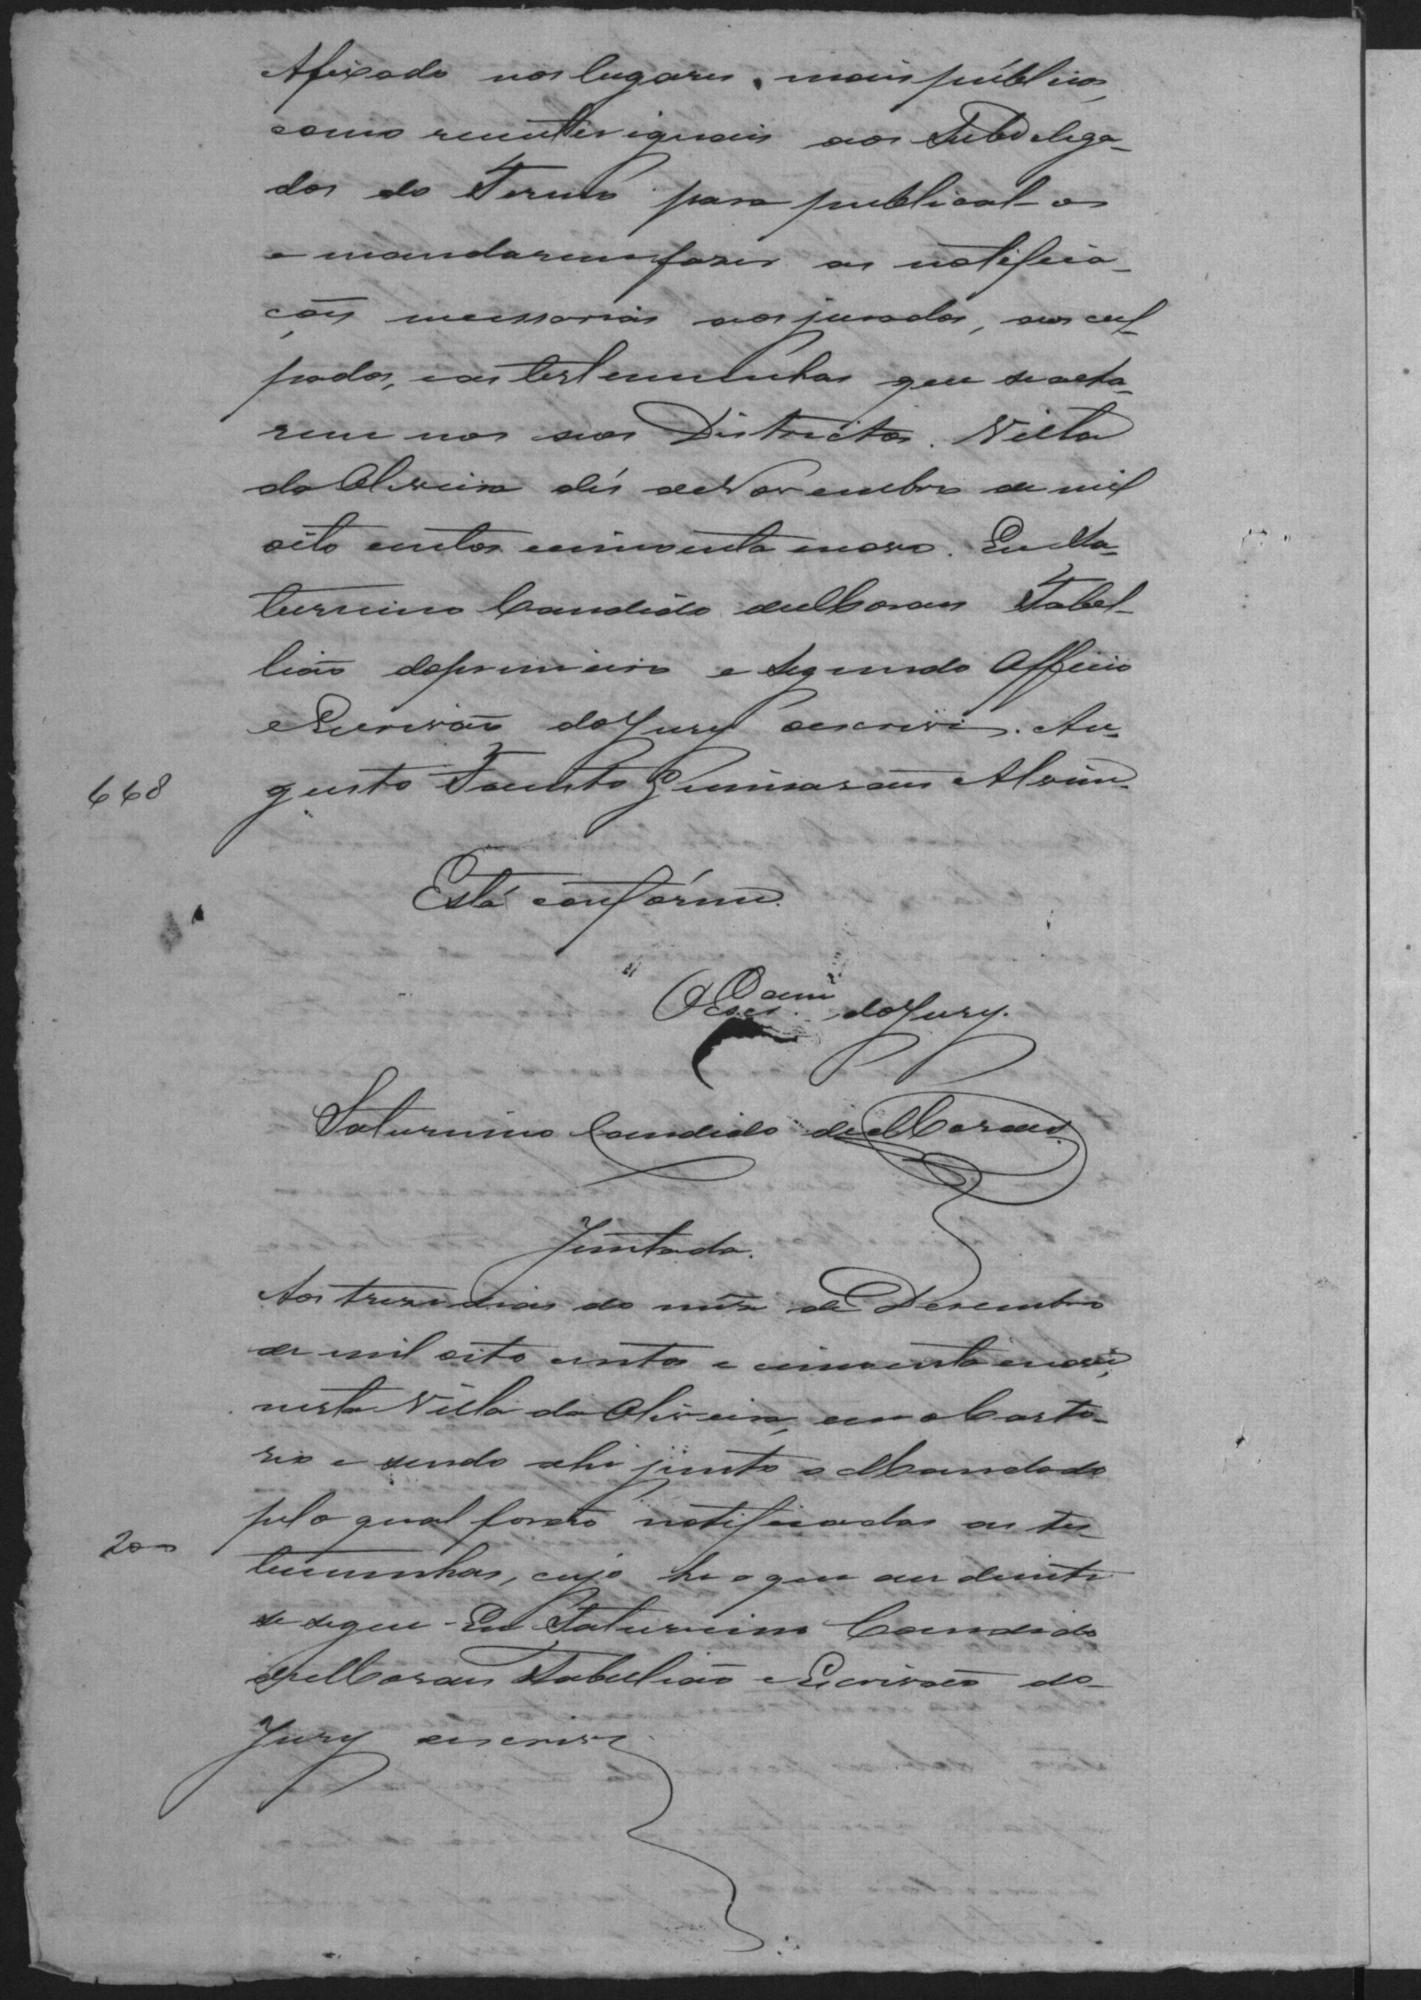 Afixado nos lugares mais publicos,
como remetter iguais aos Subdelega-
dos do Termo para publical-os
e mandarem fazer as notifica-
ções necessarias aos jurados, aos cul-
pados, e as testemunhas que se acha-
rem nos seos Districtos. Villa
da Oliveira dés de Novembro de mil
oito centos e cincoenta e nove. Eu Sa-
turnino Candido de Moraes Tabel-
lião do primeiro e segundo Officio
e Escrivão do Jury o escrivi. Au-
668 gusto Fausto Guimarães Alvim.
Está confórme.
O Escr.am do Jury.
Saturnino Candido de Moraes
Juntada.
Aos treze dias do mês de Desembro
de mil oito centos e cincoenta e nove,
nesta Villa da Oliveira, em o Carto-
rio e sendo ahi junto o Mandado
pelo qual forão notificadas as tes-
200 temunhas, cujo he o que ao diante
se segue. Eu Saturnino Candido
de Moraes Tabelião e Escrivão do
Jury o escrivi